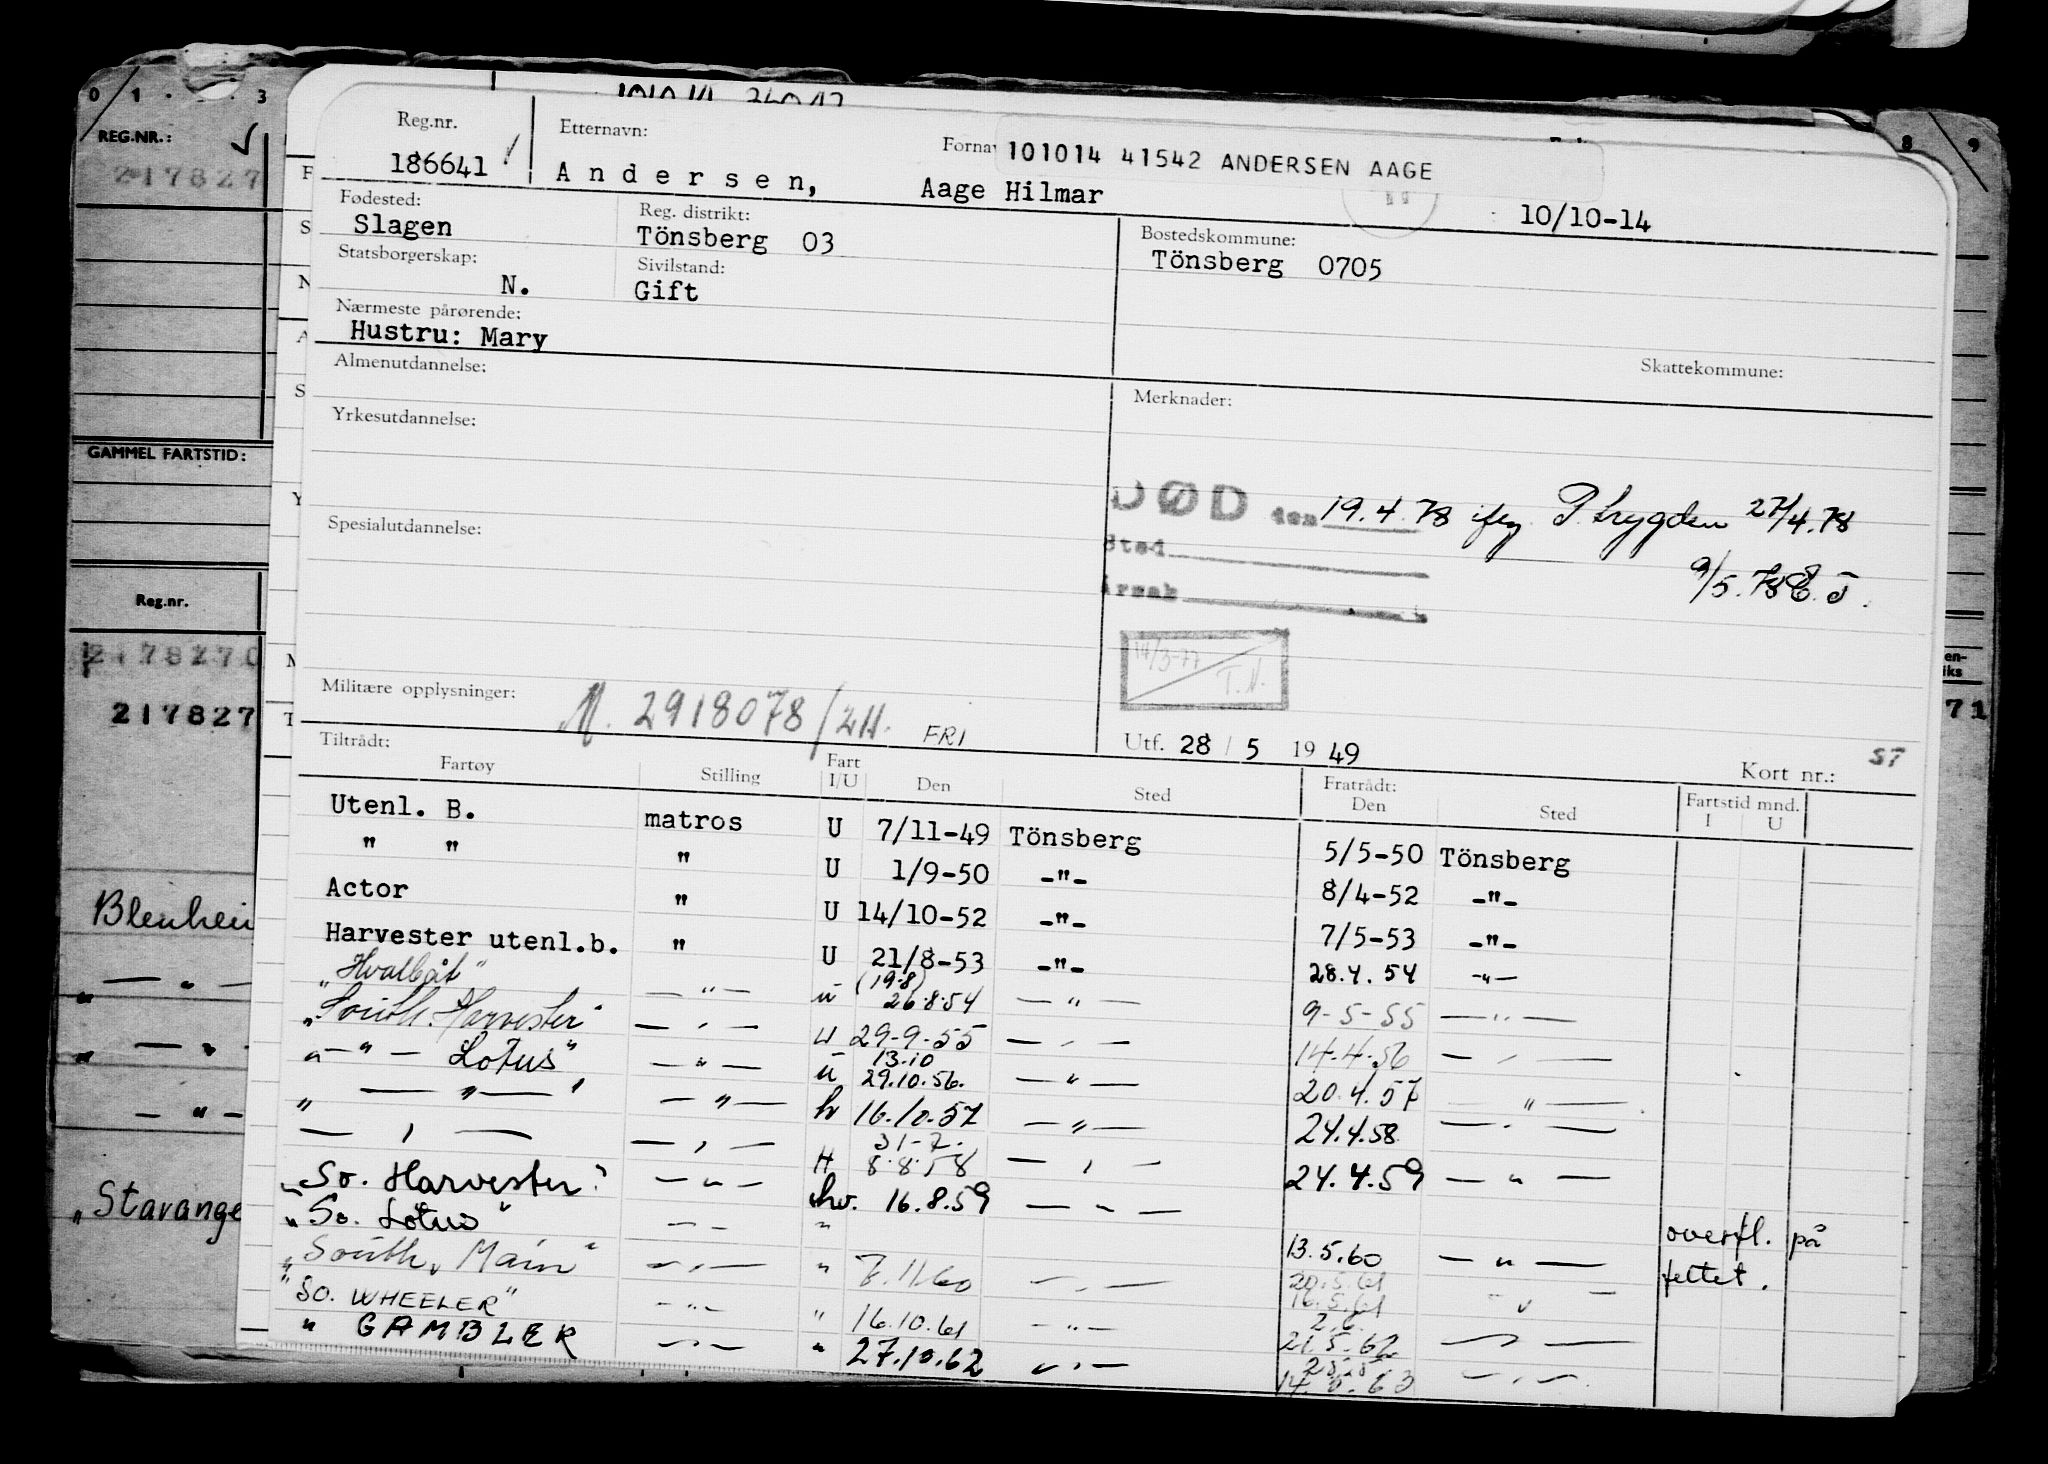 0 1 3
REG.NR.:
217827
GAMMEL FARTSTID:
Reg.nr.
2178270
217827
Blenhei
— " —
— " —
— " —
"Stavange
8 9
71
Reg.nr. Etternavn: Forna 101014 41542 ANDERSEN AAGE
186641 Andersen, Aage Hilmar 10/10-14
Fødested: Reg. distrikt: Bostedskommune:
Slagen Tönsberg 03 Tönsberg 0705
Statsborgerskap: Sivilstand:
N. Gift
Nærmeste pårørende:
Hustru: Mary
Skattekommune:
Almenutdannelse: Merknader:
Yrkesutdannelse:
DØD den 19.4.78 iflg P.trygden 27/4.78
Sted
9/5.78 E.J.
Årsak
Spesialutdannelse:
14/3-77 T.N.
Militære opplysninger: M. 2918078/2H. FRI
Utf. 28 / 5 1949 Kort nr.: S7
Tiltrådt: Fratrådt:
Fartøy Stilling Fart I/U Den Sted Den Sted Fartstid mnd. I U
Utenl. B. matros U 7/11-49 Tönsberg 5/5-50 Tönsberg
" " " U 1/9-50 -"- 8/4-52 -"-
Actor " U 14/10-52 -"- 7/5-53 -"-
Harvester utenl.b. " U 21/8-53 -"- 28.4.54 -"-
"Hvalbåt" -"- u (19.8) 26.8.54 -"- 9-5-55 -"-
"South. Harvester" -"- U 29-9-55 -"- 14.4.56 -"-
"-"- Lotus" -"- u 13.10 29.10.56. -"- 20.4.57 -"-
" -"- " -"- hv 16.10.57 -"- 24.4.58 -"-
-"- -"- H 31-7. 8.8.58 -"- 24.4.59 -"-
"So. Harvester" -"- hv. 16.8.59 -"-
"So. Lotus" -"- " 13.5.60 -"- overfl. på feltet.
"South. Main" -"- " 7.11.60 -"- 20.5.61 16.5.61 -"-
"SO. WHEELER" -"- " 16.10.61 -"- 2.6. 21.5.62 -"-
" GAMBLER -"- " 27.10.62 -"- -"-